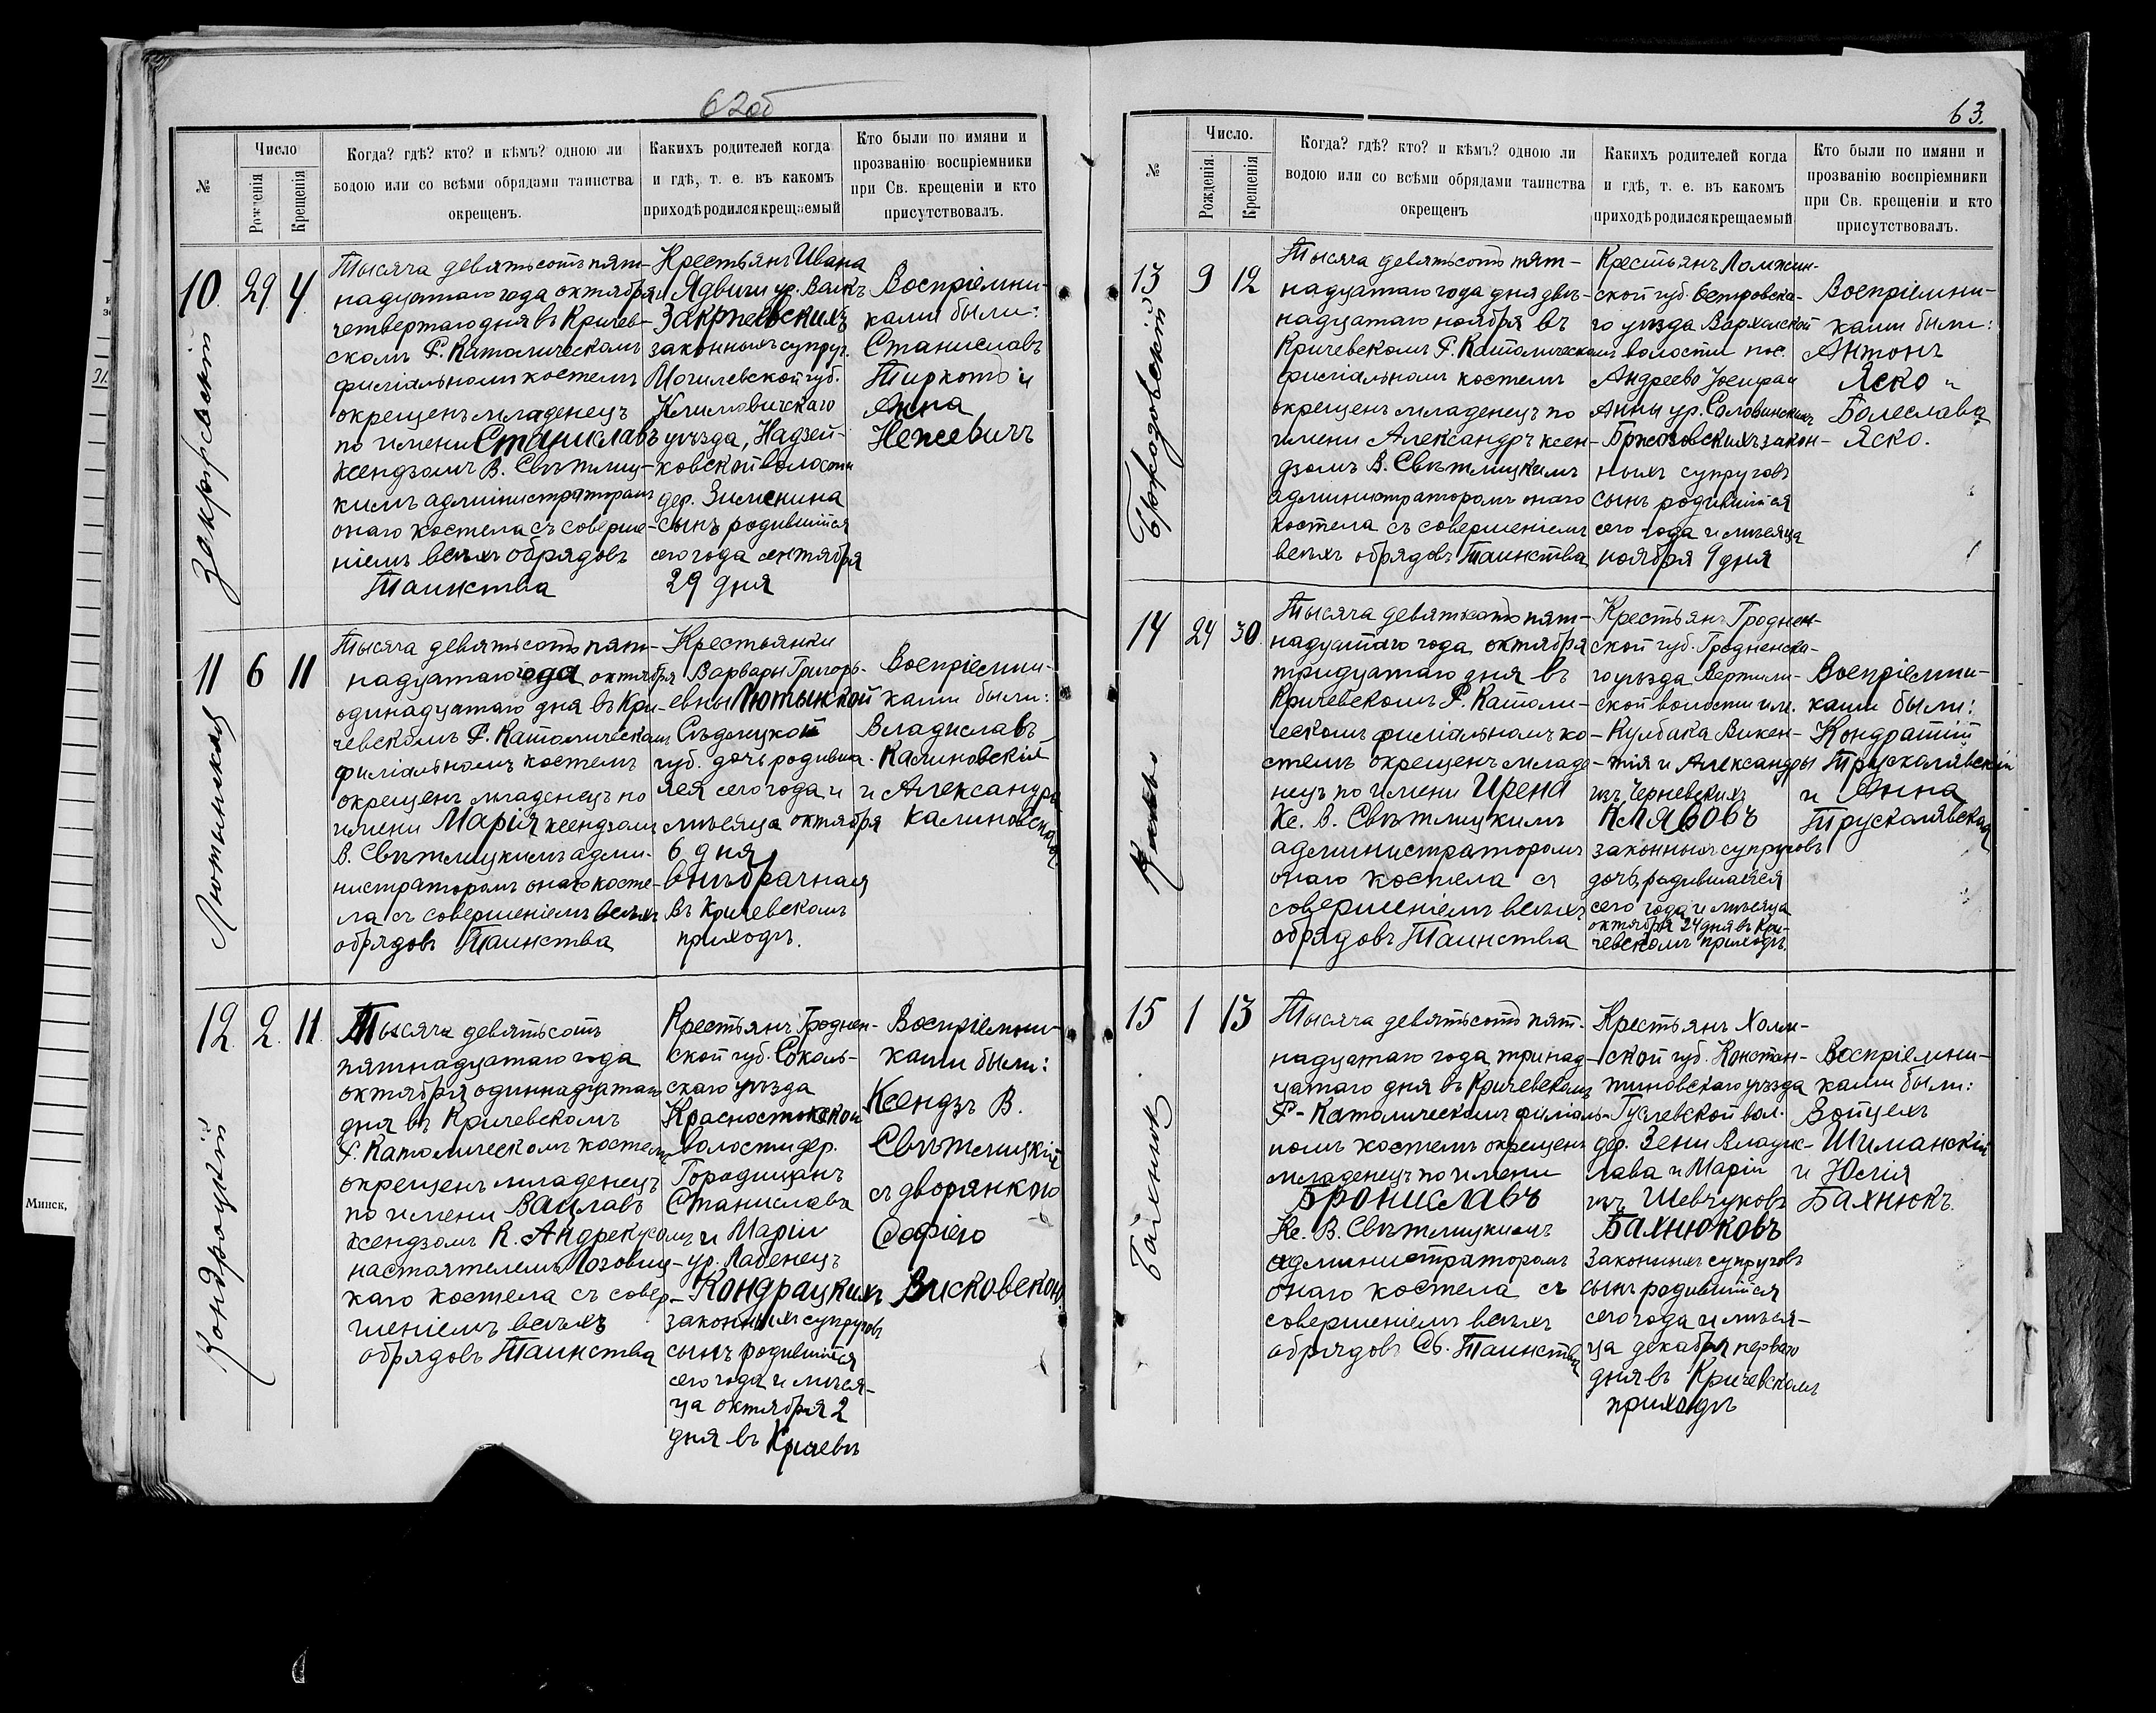 62об
№
Число
Рожденія
Крещенія
Когда? гдѣ? кто? и кѣмъ? одною ли
водою или со всѣми обрядами таинства
окрещенъ.
Какихъ родителей когда
и гдѣ, т. е. въ какомъ
приходѣ родился крещаемый
Кто были по имяни и
прозванію воспріемники
при Св. крещеніи и кто
присутствовалъ.
10. 29 4
Закржевскій
Тысяча девятьсотъ пят-
надцатаго года октября
четвертаго дня въ Кричев-
скомъ Р. Католическомъ
филіальномъ костелѣ
окрещенъ младенецъ
по имени Станиславъ
ксендзомъ В. Свѣтлиц-
кимъ администраторомъ
онаго костела съ соверше-
ніемъ всѣхъ обрядовъ
Таинства
Крестьянъ Ивана
и Ядвиги ур. Валкъ
Закржевскихъ
законныхъ супруг.
Могилевской губ.
Климовичскаго
уѣзда, Надзей-
ковской волости
дер. Зимонина
сынъ родившійся
сего года сентября
29 дня
Воспріемни-
ками были:
Станиславъ
Тиркотъ и
Анна
Нежевичъ
11 6 11
Тысяча девятьсотъ пят-
надцатаго года октября
одинадцатаго дня въ Кри-
чевскомъ Р. Католическомъ
филіальномъ костелѣ
окрещенъ младенецъ по
имени Марія ксендзомъ
В. Свѣтлицкимъ адми-
нистраторомъ онаго косте-
ла съ совершеніемъ всѣхъ
обрядовъ Таинства
Крестьянки
Варвары Григорь-
евны Мотынкой
Сѣдлецкой
губ. дочь родивша-
яся сего года и
мѣсяца октября
6 дня
внѣбрачная
въ Кричевскомъ
приходѣ.
Воспріемни-
ками были:
Владиславъ
Калиновскій
и Александра
Калиновская
12. 2. 11.
Кондрацкій
Тысяча девятьсотъ
пятнадцатаго года
октября одиннадцатаго
дня въ Кричевскомъ
Р. Католическомъ костелѣ
окрещенъ младенецъ
по имени Вацлавъ
ксендзомъ К. Андрекусомъ
настоятелемъ Лозовиц-
каго костела съ совер-
шеніемъ всѣхъ
обрядовъ Таинства
Крестьянъ Гроднен-
ской губ. Соколь-
скаго уѣзда
Красностокской
волости дер.
Городищанъ
Станислава
и Маріи
ур. Лабенецъ
Кондрацкихъ
законныхъ супруговъ
сынъ родившійся
сего года и мѣся-
ца октября 2
дня въ Кричевѣ
Воспріемни-
ками были:
Ксендзъ В.
Свѣтлицкій
съ дворянкою
Софіею
Висковскою.
63.
№
Число.
Рожденія.
Крещенія
Когда? гдѣ? кто? и кѣмъ? одною ли
водою или со всѣми обрядами таинства
окрещенъ
Какихъ родителей когда
и гдѣ, т. е. въ какомъ
приходѣ родился крещаемый
Кто были по имяни и
прозванію воспріемники
при Св. крещеніи и кто
присутствовалъ.
13 9 12
Тысяча девятьсотъ пят-
надцатаго года дня двѣ-
надцатаго ноября въ
Кричевскомъ Р. Католическомъ
филіальномъ костелѣ
окрещенъ младенецъ по
имени Александръ ксен-
дзомъ В. Свѣтлицкимъ
администраторомъ онаго
костела съ совершеніемъ
всѣхъ обрядовъ Таинства
Крестьянъ Ломжин-
ской губ. Островска-
го уѣзда
волости пос.
Андреево Іосифа и
Анны ур. Соловинскихъ
Бржозовскихъ закон-
ныхъ супруговъ
сынъ родившійся
сего года и мѣсяца
ноября 9 дня
Воспріемни-
ками были:
Антонъ
Яско и
Болеслава
Яско.
14 24 30.
Тысяча девятьсотъ пят-
надцатаго года октября
тридцатаго дня въ
Кричевскомъ Р. Католи-
ческомъ филіальномъ ко-
стелѣ окрещенъ младе-
нецъ по имени Ирена
Кс. В. Свѣтлицкимъ
администраторомъ
онаго костела съ
совершеніемъ всѣхъ
обрядовъ Таинства
Крестьянъ Гроднен-
ской губ. Гродненска-
го уѣзда Вертили-
ской волости им.
Кулбака Викен-
тія и Александры
изъ Черневскихъ
законныхъ супруговъ
дочь, родившаяся
сего года и мѣсяца
октября 24 дня въ Кри-
чевскомъ приходѣ.
Воспріемни-
ками были:
Кондратій
Трусколявскій
и Анна
Трусколявская
15 1 13
Бахнюкъ
Тысяча девятьсотъ пят-
надцатаго года тринад-
цатаго дня въ Кричевскомъ
Р-Католическомъ филіаль-
номъ костелѣ окрещенъ
младенецъ по имени
Брониславъ
Кс. В. Свѣтлицкимъ
администраторомъ
онаго костела съ
совершеніемъ всѣхъ
обрядовъ Св. Таинства
Крестьянъ Холм-
ской губ. Констан-
тиновскаго уѣзда
вол.
дер. Зени Владис-
лава и Маріи
изъ Шевчуковъ
Бахнюковъ
законныхъ супруговъ
сынъ родившійся
сего года и мѣся-
ца декабря перваго
дня въ Кричевскомъ
приходѣ
Воспріемни-
ками были:
Войцехъ
Шиманскій
и Юлія
Бахнюкъ.
Минск,